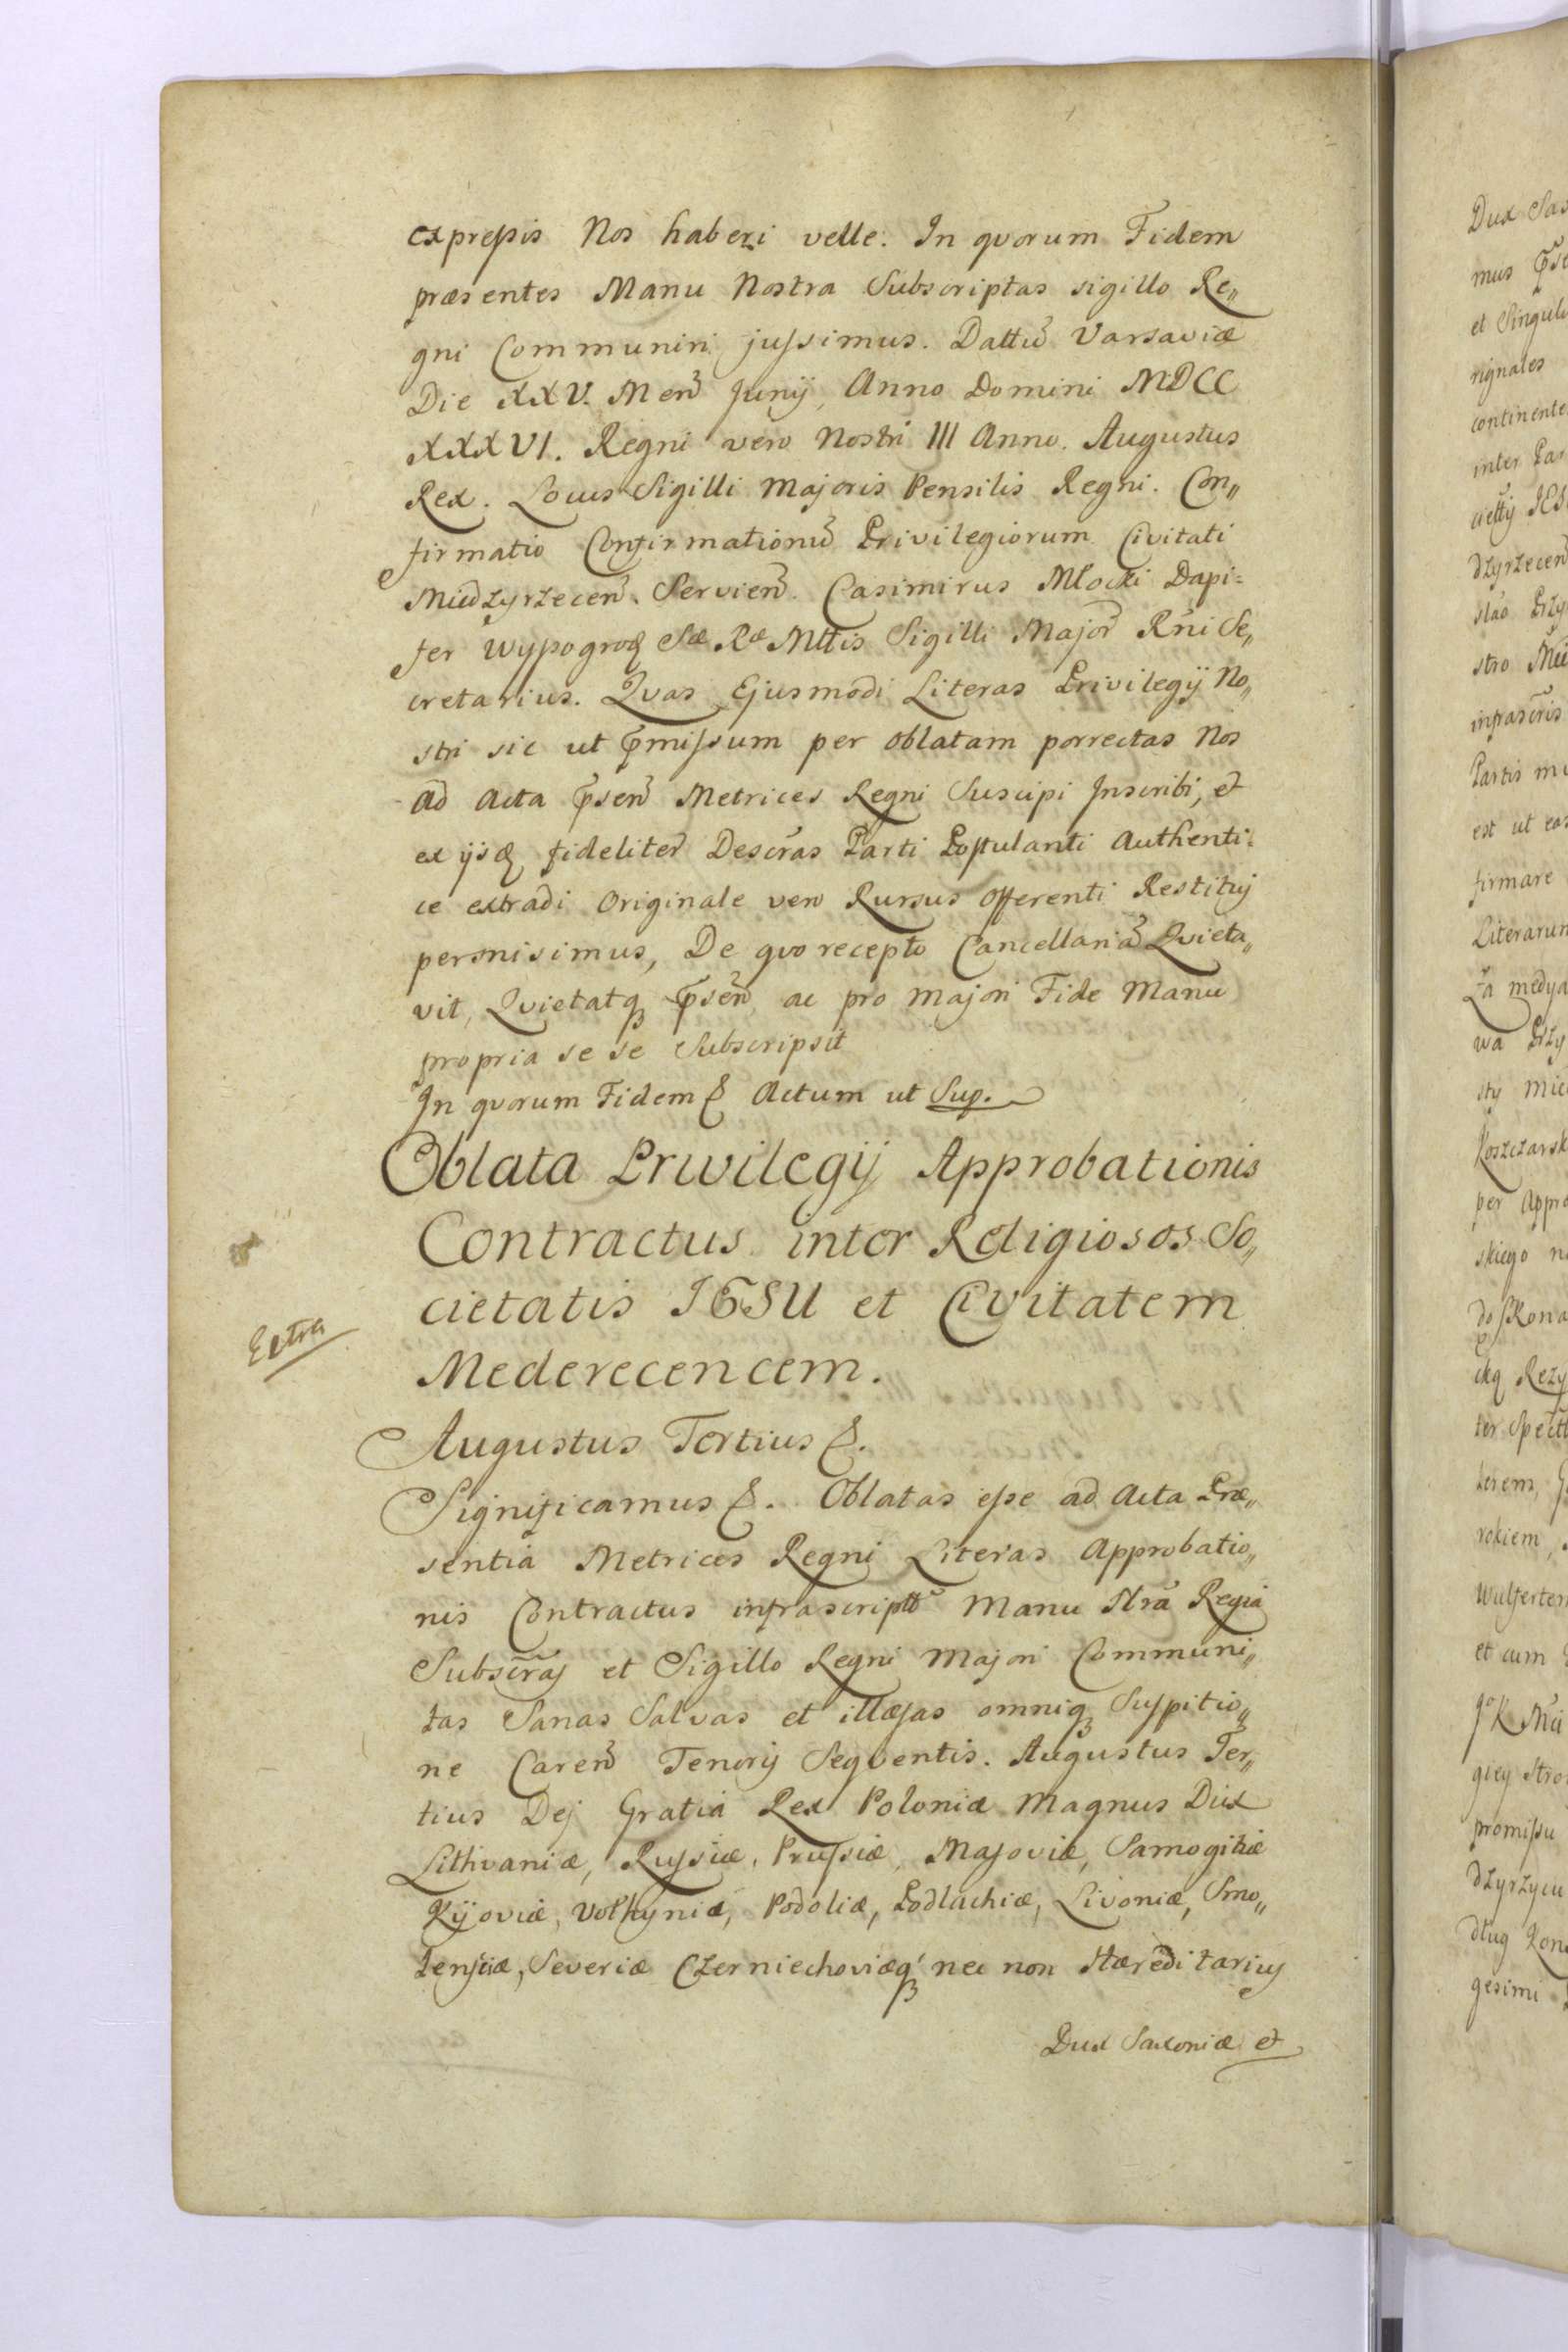 expressis Nos haberi velle. In qvorum Fidem
præsentes Manu Nostra Subscriptas sigillo Re„
gni Communiri jussimus. Dattu̅ Varsaviæ
Die XXV. Men̅ Junij, Anno Domini MDCC
XXXVI. Regni vero Nostri III Anno. Augustus
Rex. Locus Sigilli Majoris Pensilis Regni. Con„
firmatio Confirmationu̅ Privilegiorum Civitati
Miedzyrzecen̅. Servien̅. Casimirus Młocki Dapi=
fer Wyßogroꝫ Sæ Ræ Mttis Sigilli Major̅ Rn̅i Se„
cretarius. Qvas Ejusmodi Literas Privilegij No„
stri sic ut p̅missum per oblatam porrectas Nos
ad Acta p̅sen̅ Metrices Regni Suscipi Inscribi, et
ex ijsꝗ fideliter Descr̅as Parti Postulanti Authenti=
ce extradi Originale vero Rursus Offerenti Restituj
permisimus, De qvo recepto Cancellaria̅ Qvieta„
vit, Qvietatꝗ p̅sen̅, ac pro majori Fide Manu
propria se se Subscripsit
In qvorum Fidem &. Actum ut Sup.
Oblata Privilegij Approbationis
Contractus inter Religiosos So„
cietatis IESU et Civitatem
Mederecencem.
Extra
Augustus Tertius &.
Significamus &. Oblatas esse ad Acta Præ„
sentia Metrices Regni Literas Approbatio„
nis Contractus infrascriptt̅ Manu Nr̅a Regia
Subscr̅as et Sigillo Regni Majori Communi„
tas Sanas Salvas et illæsas omniꝗ Suspitio„
ne Caren̅ Tenoris Seqventis. Augustus Ter„
tius Dej Gratia Rex Poloniæ Magnus Dux
Lithvaniæ, Russiæ, Prussiæ, Masoviæ, Samogitiæ
Kijoviæ, Volhyniæ, Podoliæ, Podlachiæ, Livoniæ, Smo„
lensciæ, Severiæ Czerniechoviæꝗ nec non Hæreditarius
Dux Saxoniæ et
Dux Sax
mus
et Singul
rignales
continente
inter Par
stro
Partis
est ut eos
firmare
Literarum
per Appro
skiego
et cum
promissu
gesimi